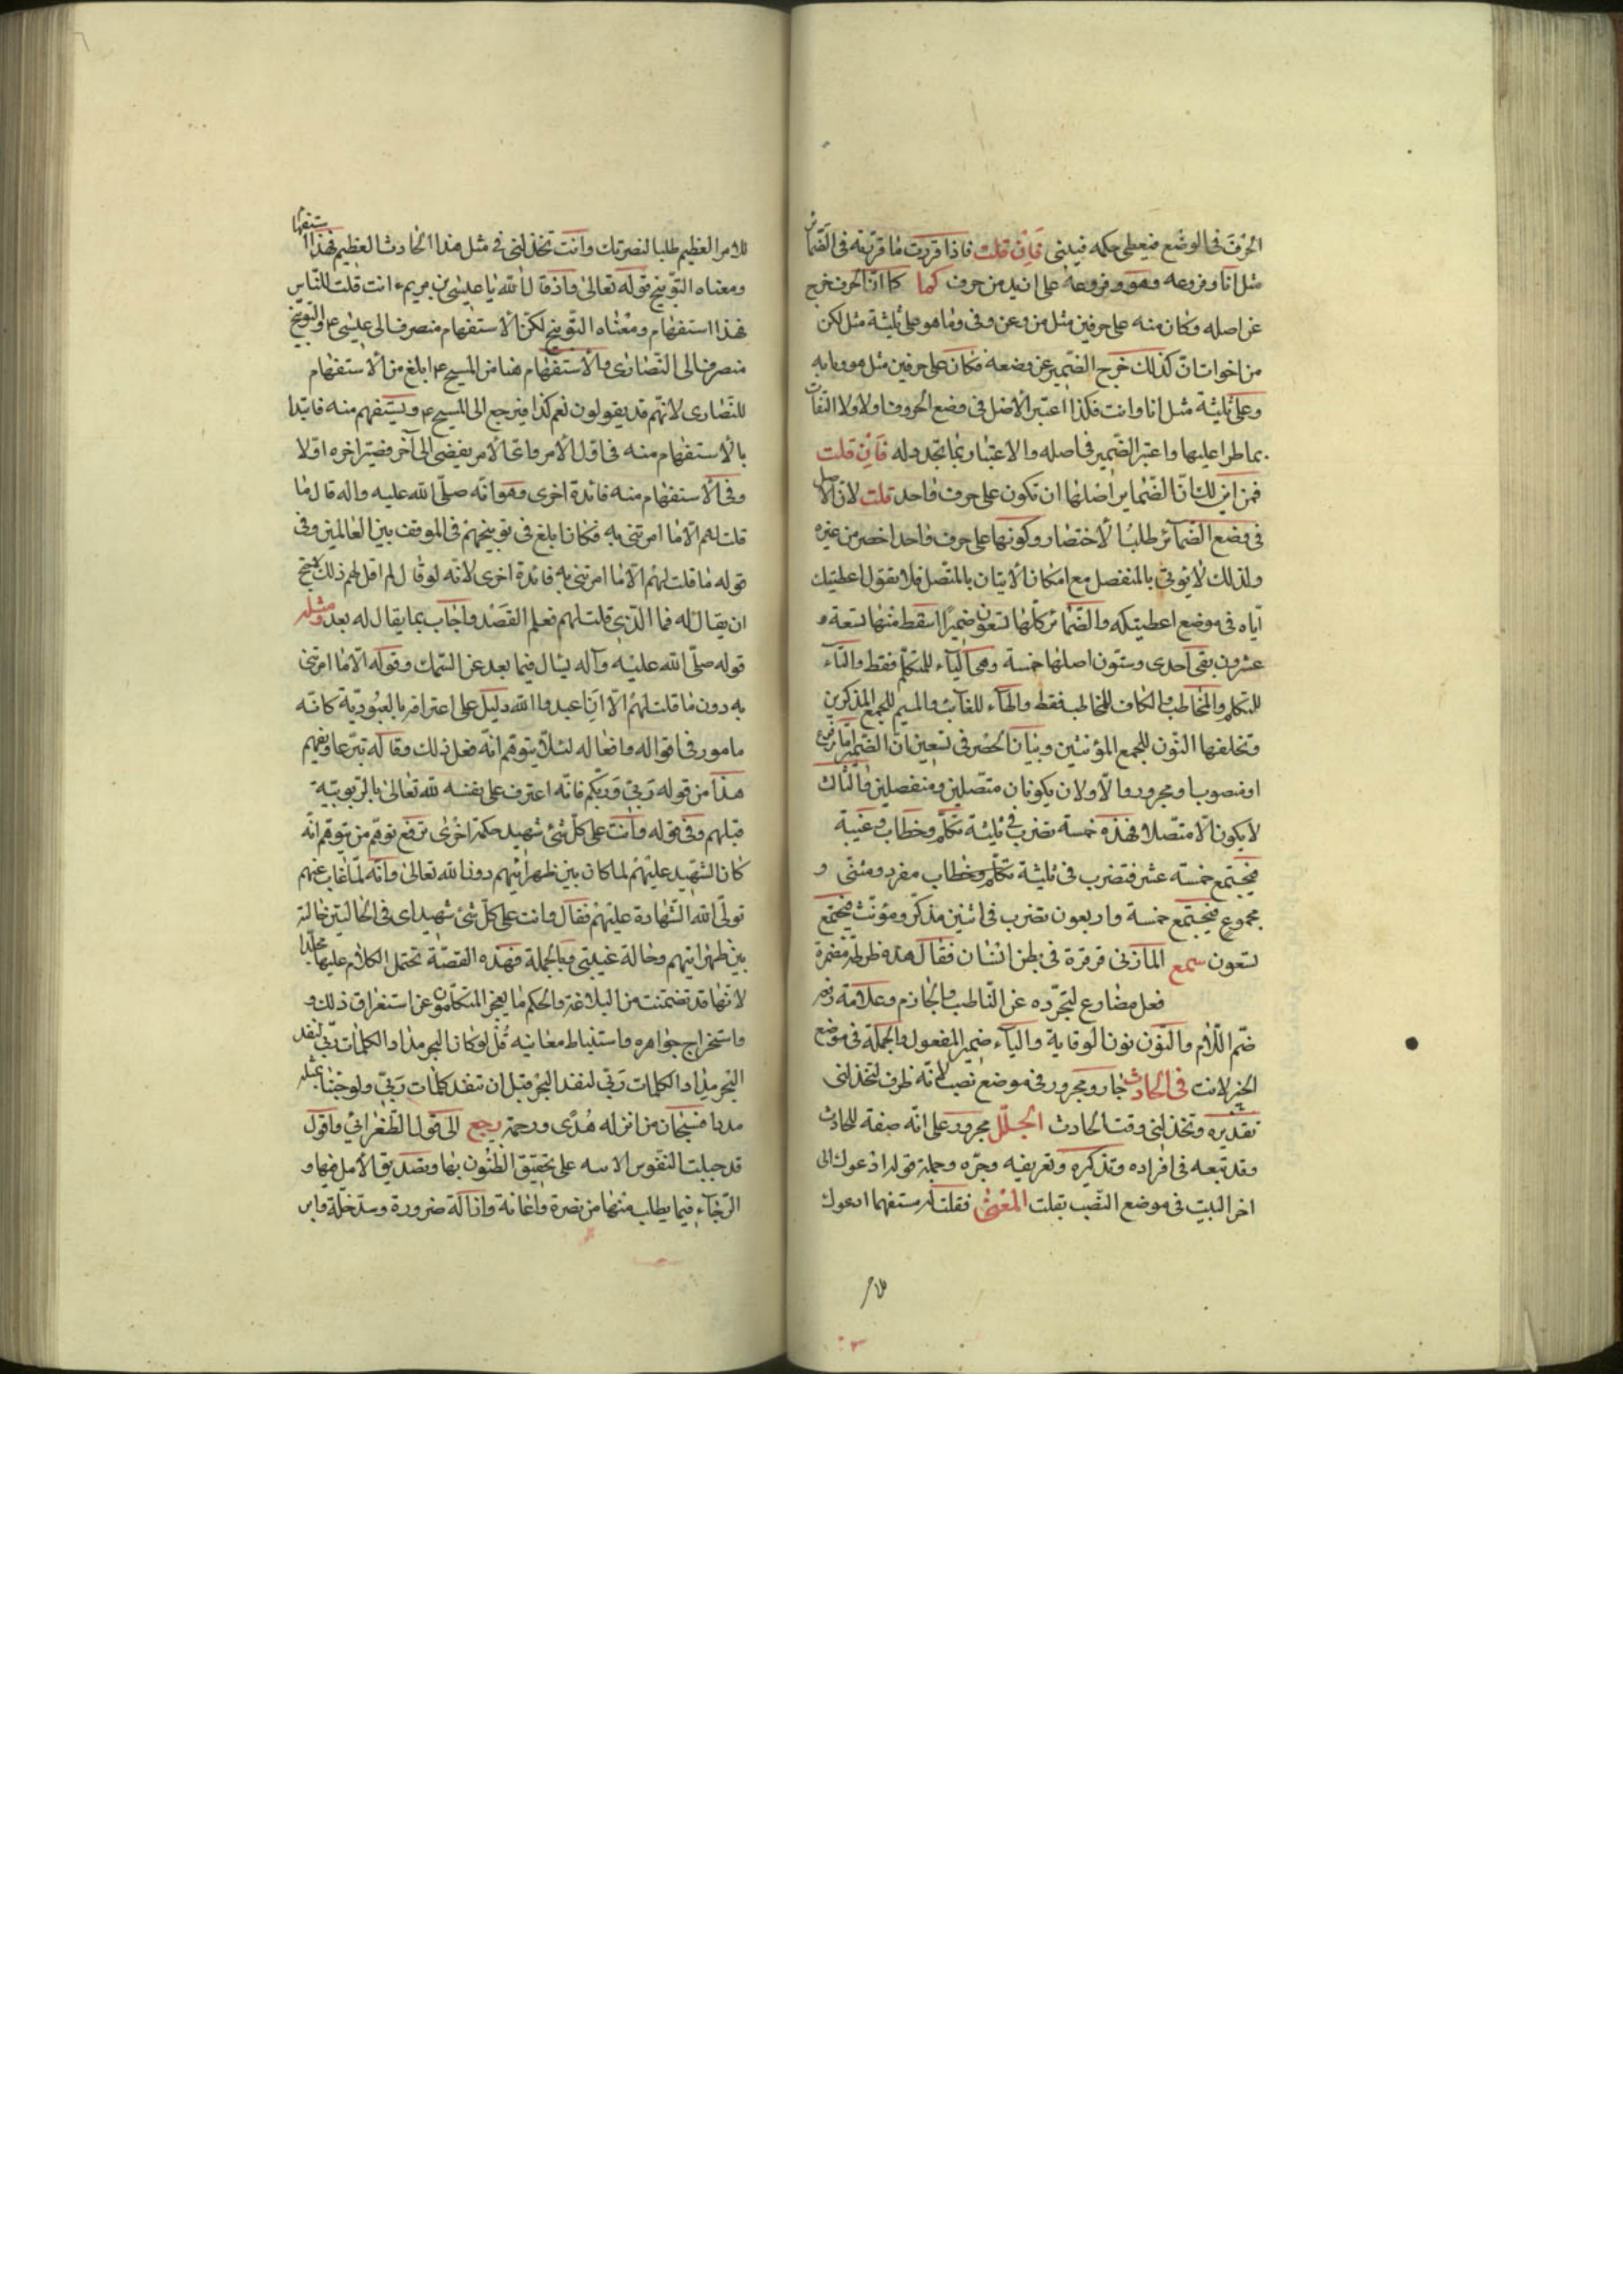 الحرف فى الوضع فيعطى حكمه فيبنى فان قلت فاذا قررت ما قررته فى الضمائر
مثل انا وفروعه وهو وفروعه على ازيد من حرف كما كما ان الحرف خرج
عن اصله وكان منه على حرفين مثل من وعن وفى وما هو على ثلثة مثل لكن
من اخوات ان كذلك خرج الضمير عن وضعه فكان على حرفين مثل هو وبابه
وعلى ثلثة مثل انا وانت فكذا اعتبر الاصل فى وضع الحروف اولا ولا التفات
بما طرا عليها واعتبر الضمير فى اصله والاعتبار بما تجدد له فان قلت
فمن اين لك ان الضماير اصلها ان تكون على حرف واحد قلت لان الاصل
فى وضع الضمائر طلبا لاختصار وكونها على حرف واحد اخصر من غيره
ولذلك لا يوتى بالمنفصل مع امكان الاتيان بالمتصل فلا يقول اعطيتك
اياه فى موضع اعطيتكه والضمائر كلها تسعون ضميرا اسقط منها تسعة و
عشرون بقى احدى وستون اصلها خمسة وهى الياء للمتكلم فقط والتاء
للمتكلم والمخاطب والكاف للمخاطب فقط والهاء للغائب والميم للجمع المذكرين
وتخلفها النون للجمع المؤنثين وبيان الحصر فى تسعين ان الضمير اما مرفوع
او منصوب او مجرور والاولان يكونان متصلين ومنفصلين والثالث
لا يكون الا متصلا فهذه خمسة تضرب فى ثلثة تكلم وخطاب وغيبة
فيجتمع خمسة عشر فتضرب فى ثلثة تكلم وخطاب مفرد ومثنى و
مجموع فيجتمع خمسة واربعون تضرب فى اثنين مذكر ومؤنث فيجتمع
تسعون سمع المازنى قرقرة فى بطن انسان فقال هذه ضرطة مضمرة
فعل مضارع لتجرده عن الناصب والجازم وعلامة رفعه
ضم اللام والنون نون الوقاية والياء ضمير المفعول والجملة فى موضع
الخبر لانت فى الحادث جار ومجرور فى موضع نصب لانه ظرف لتخذلنى
تقديره وتخذلنى وقت الحادث الجلل مجرور على انه صفة للحادث
وقد تبعه فى افراده وتذكيره وتعريفه وجره وجملة قوله ادعوك الى
اخر البيت فى موضع النصب بقلت المعنى فقلت له مستفهما ادعوك
للامر العظيم طلبا لنصرتك وانت تخذلنى فى مثل هذا الحادث العظيم فهذا استفهام
ومعناه التوبيخ قوله تعالى واذ قال الله يا عيسى بن مريم ء انت قلت للناس
فهذا استفهام ومعناه التوبيخ لكن الاستفهام منصرف الى عيسى ع والتوبيخ
منصرف الى النصارى والاستفهام هنا من المسيح ع ابلغ من الاستفهام
للنصارى لانهم قد يقولون نعم كذا فيرجع الى المسيح ع ويستفهم منه فابتدا
بالاستفهام منه فى اول الامر واى الامر يفضى الى آخر فصير اخره اولا
وفى الاستفهام منه فائدة اخرى وهو انه صلى الله عليه واله قال ما
قلت لهم الا ما امرتنى به فكان ابلغ فى توبيخهم فى الموقف بين العالمين وفى
قوله ما قلت لهم الا ما امرتنى به فائدة اخرى لانه لو قال لم اقل لهم ذلك لاحتج
ان يقال له فما الذى قلت لهم فعلم القصد واجاب بما يقال له بعد ومثله
قوله صلى الله عليه وآله يسال فيما بعد عن السمك وقوله الا ما امرتنى
به دون ما قلت لهم الا ان اعبدوا الله دليل على اعترافه بالعبودية كانه
مامور فى اقواله وافعاله لئلا يتوهم انه فعل ذلك وقاله تبرعا ويفهم
هذا من قوله ربى وربكم فانه اعترف على نفسه لله تعالى بالربوبية
قبلهم وفى قوله وانت على كل شئ شهيد حكمة اخرى ترفع توهم من يتوهم انه
كان الشهيد عليهم لما كان بين ظهرانيهم دون الله تعالى وانه لما غاب عنهم
تولى الله الشهادة عليهم فقال وانت على كل شئ شهيد اى فى الحالتين حالة
بين ظهرانيهم وحالة غيبتى وبالجملة فهذه القصة تحتمل الكلام عليها مجلدا
لانها قد تضمنت من البلاغة والحكم ما يعجز المتكلمون عن استغراق ذلك و
واستخراج جواهره واستنباط معانيه قل لو كان البحر مدادا لكلمات ربى لنفد
البحر مدادا لكلمات ربى لنفد البحر قبل ان تنفد كلمات ربى ولو جئنا بمثله
مددا فسبحان من انزله هدى ورحمة رجع الى قول الطغرائى واقول
قد جبلت النفوس الابيه على تحقيق الظنون بها وتصديق الامل فيها و
الرجاء فيما يطلب منها من نصرة واغاثة وازالة ضرورة وسد خلة وابن